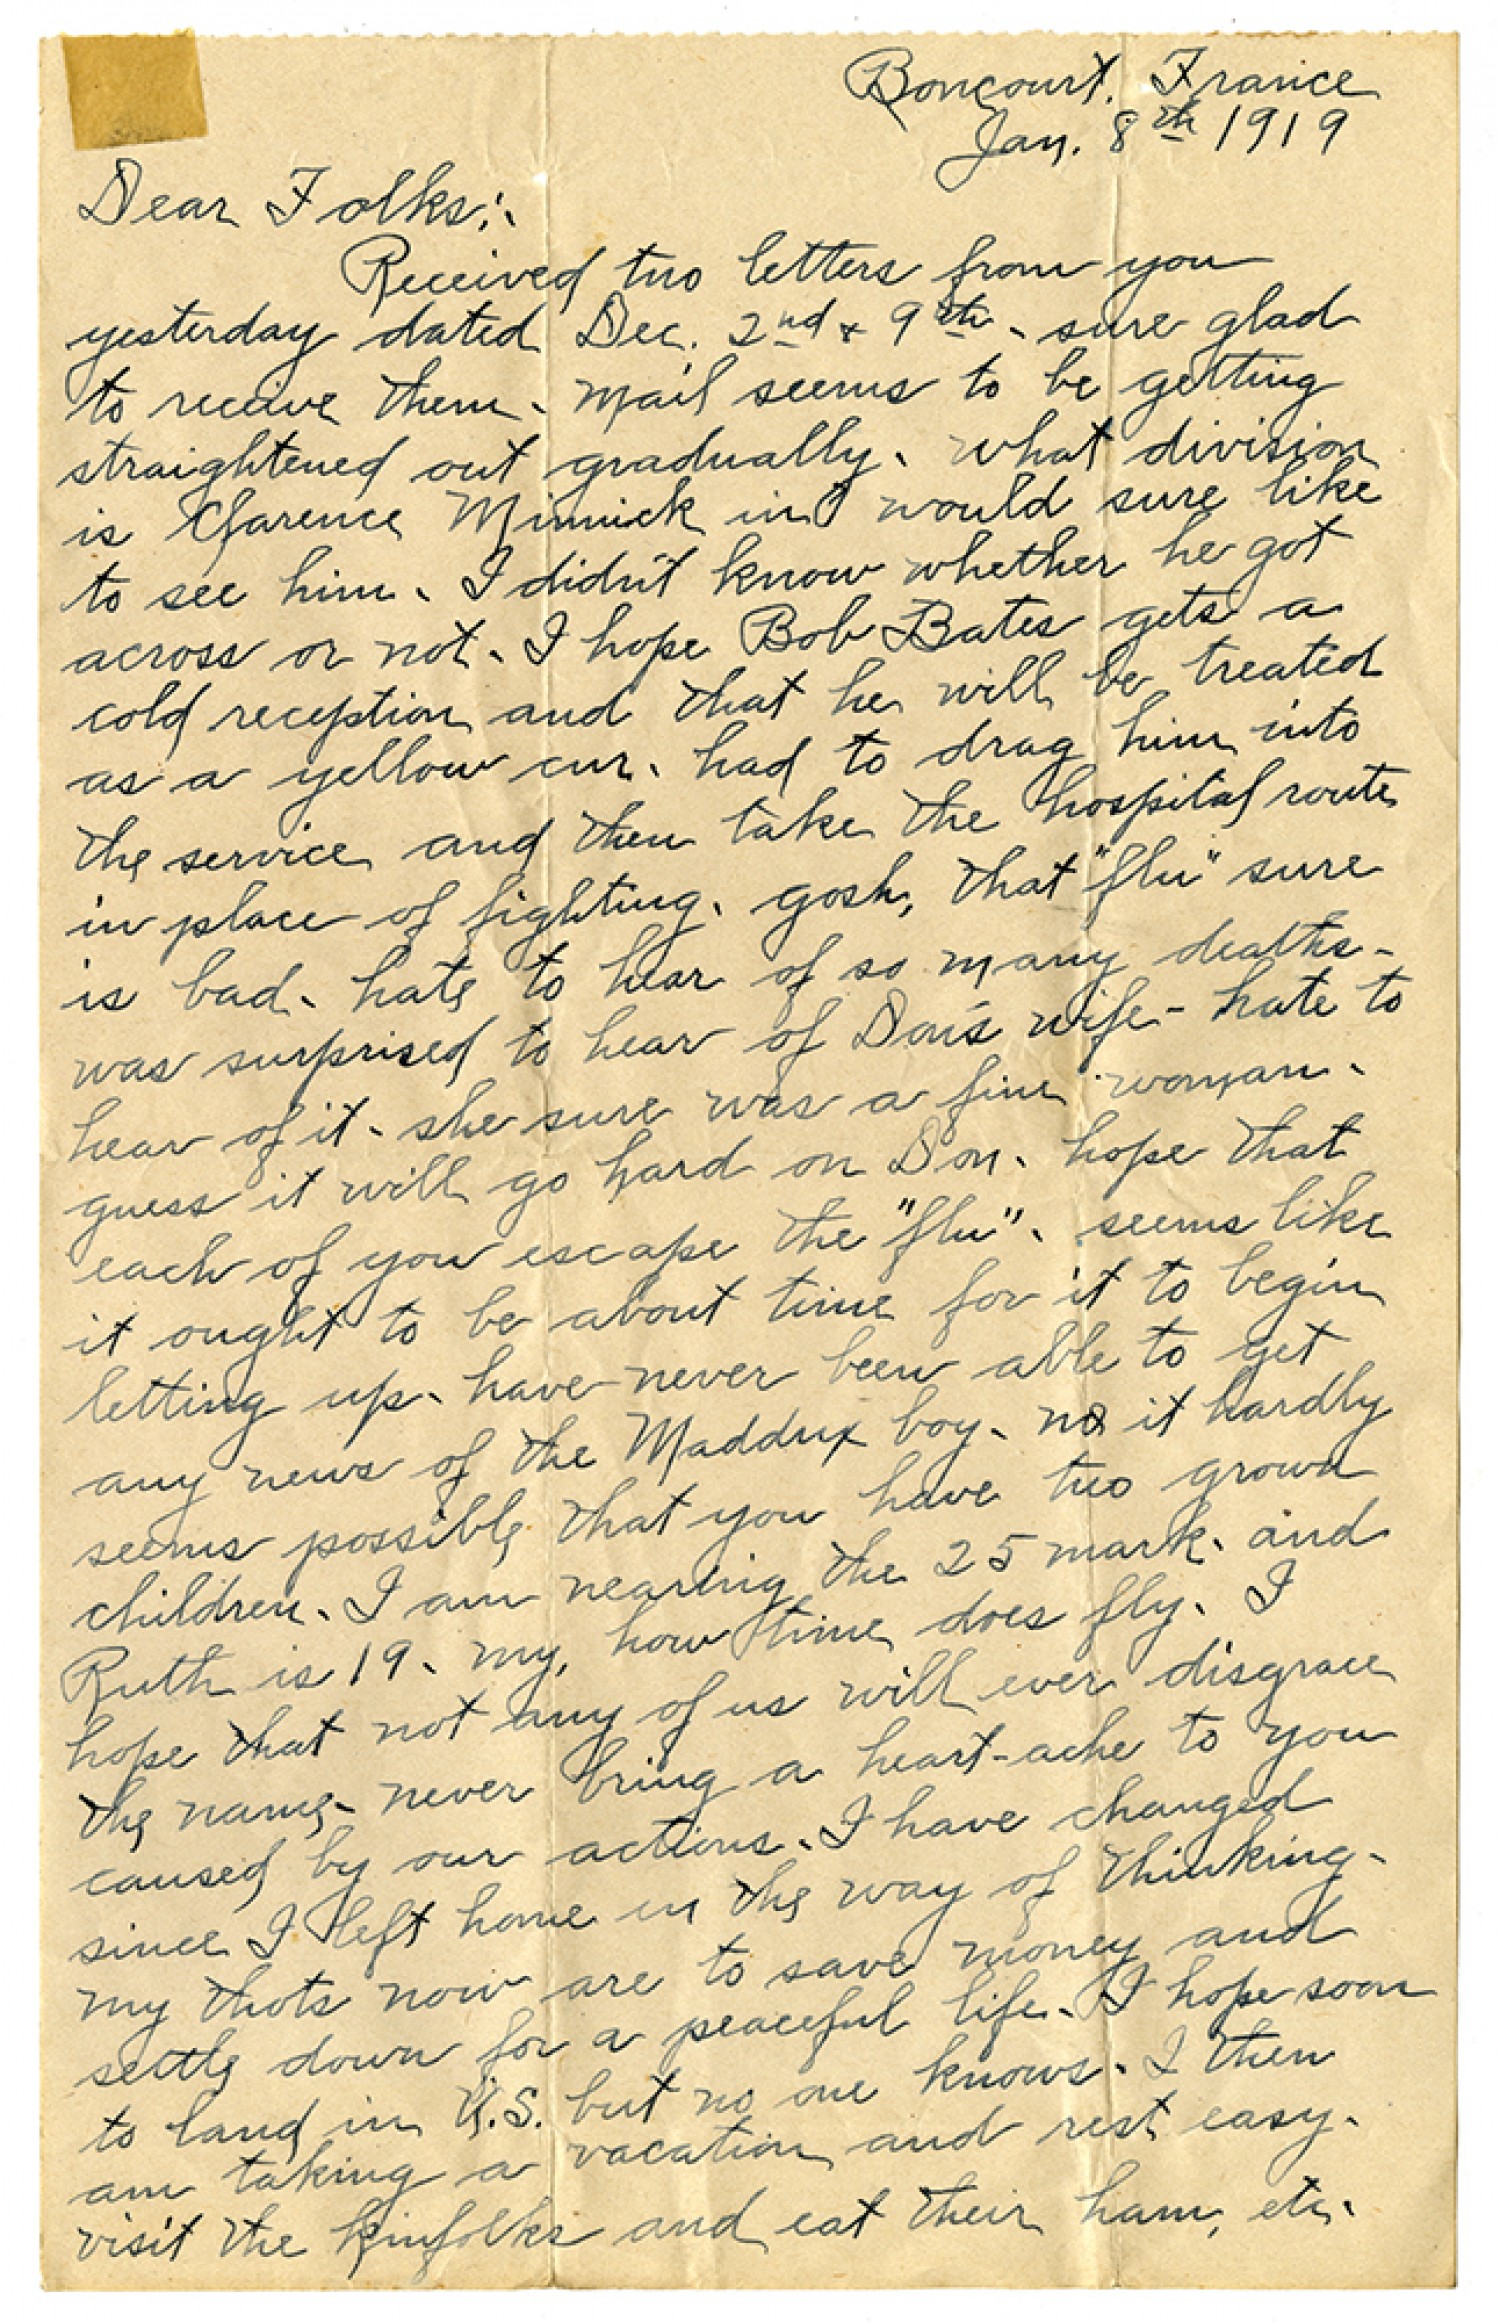 Boncourt, France
Jan. 8th 1919
Dear Folks:.
Received two letters from you
yesterday dated Dec. 2nd & 9th. sure glad
to receive them. mail seems to be getting
straightened out gradually. what division
is Clarence Minnick in? would sure like
to see him. I didn't know whether he got
across or not. I hope Bob Bates gets a
cold reception and that he will be treated
as a yellow cur. had to drag him into
the service and then take the hospital route
in place of fighting. gosh, that "flu" sure
is bad. hate to hear of so many deaths-
was surprised to hear of Don's wife- hate to
hear of it. she sure was a fine woman.
guess it will go hard on Don. hope that
each of you escape the "flu". seems like
it ought to be about time for it to begin
letting up. have never been able to get
any news of the Maddux boy. no it hardly
seems possible that you have two grown
children. I am nearing the 25 mark. and
Ruth is 19. my, how time does fly. I
hope that not any of us will ever disgrace
the name. never bring a heart-ache to you
caused by our actions. I have changed
since I left home in the way of thinking.
my thots now are to save money and
settle down for a peaceful life. I hope soon
to land in U.S. but no one knows. I then
am taking a vacation and rest easy.
visit the kinfolks and eat their ham, etc.